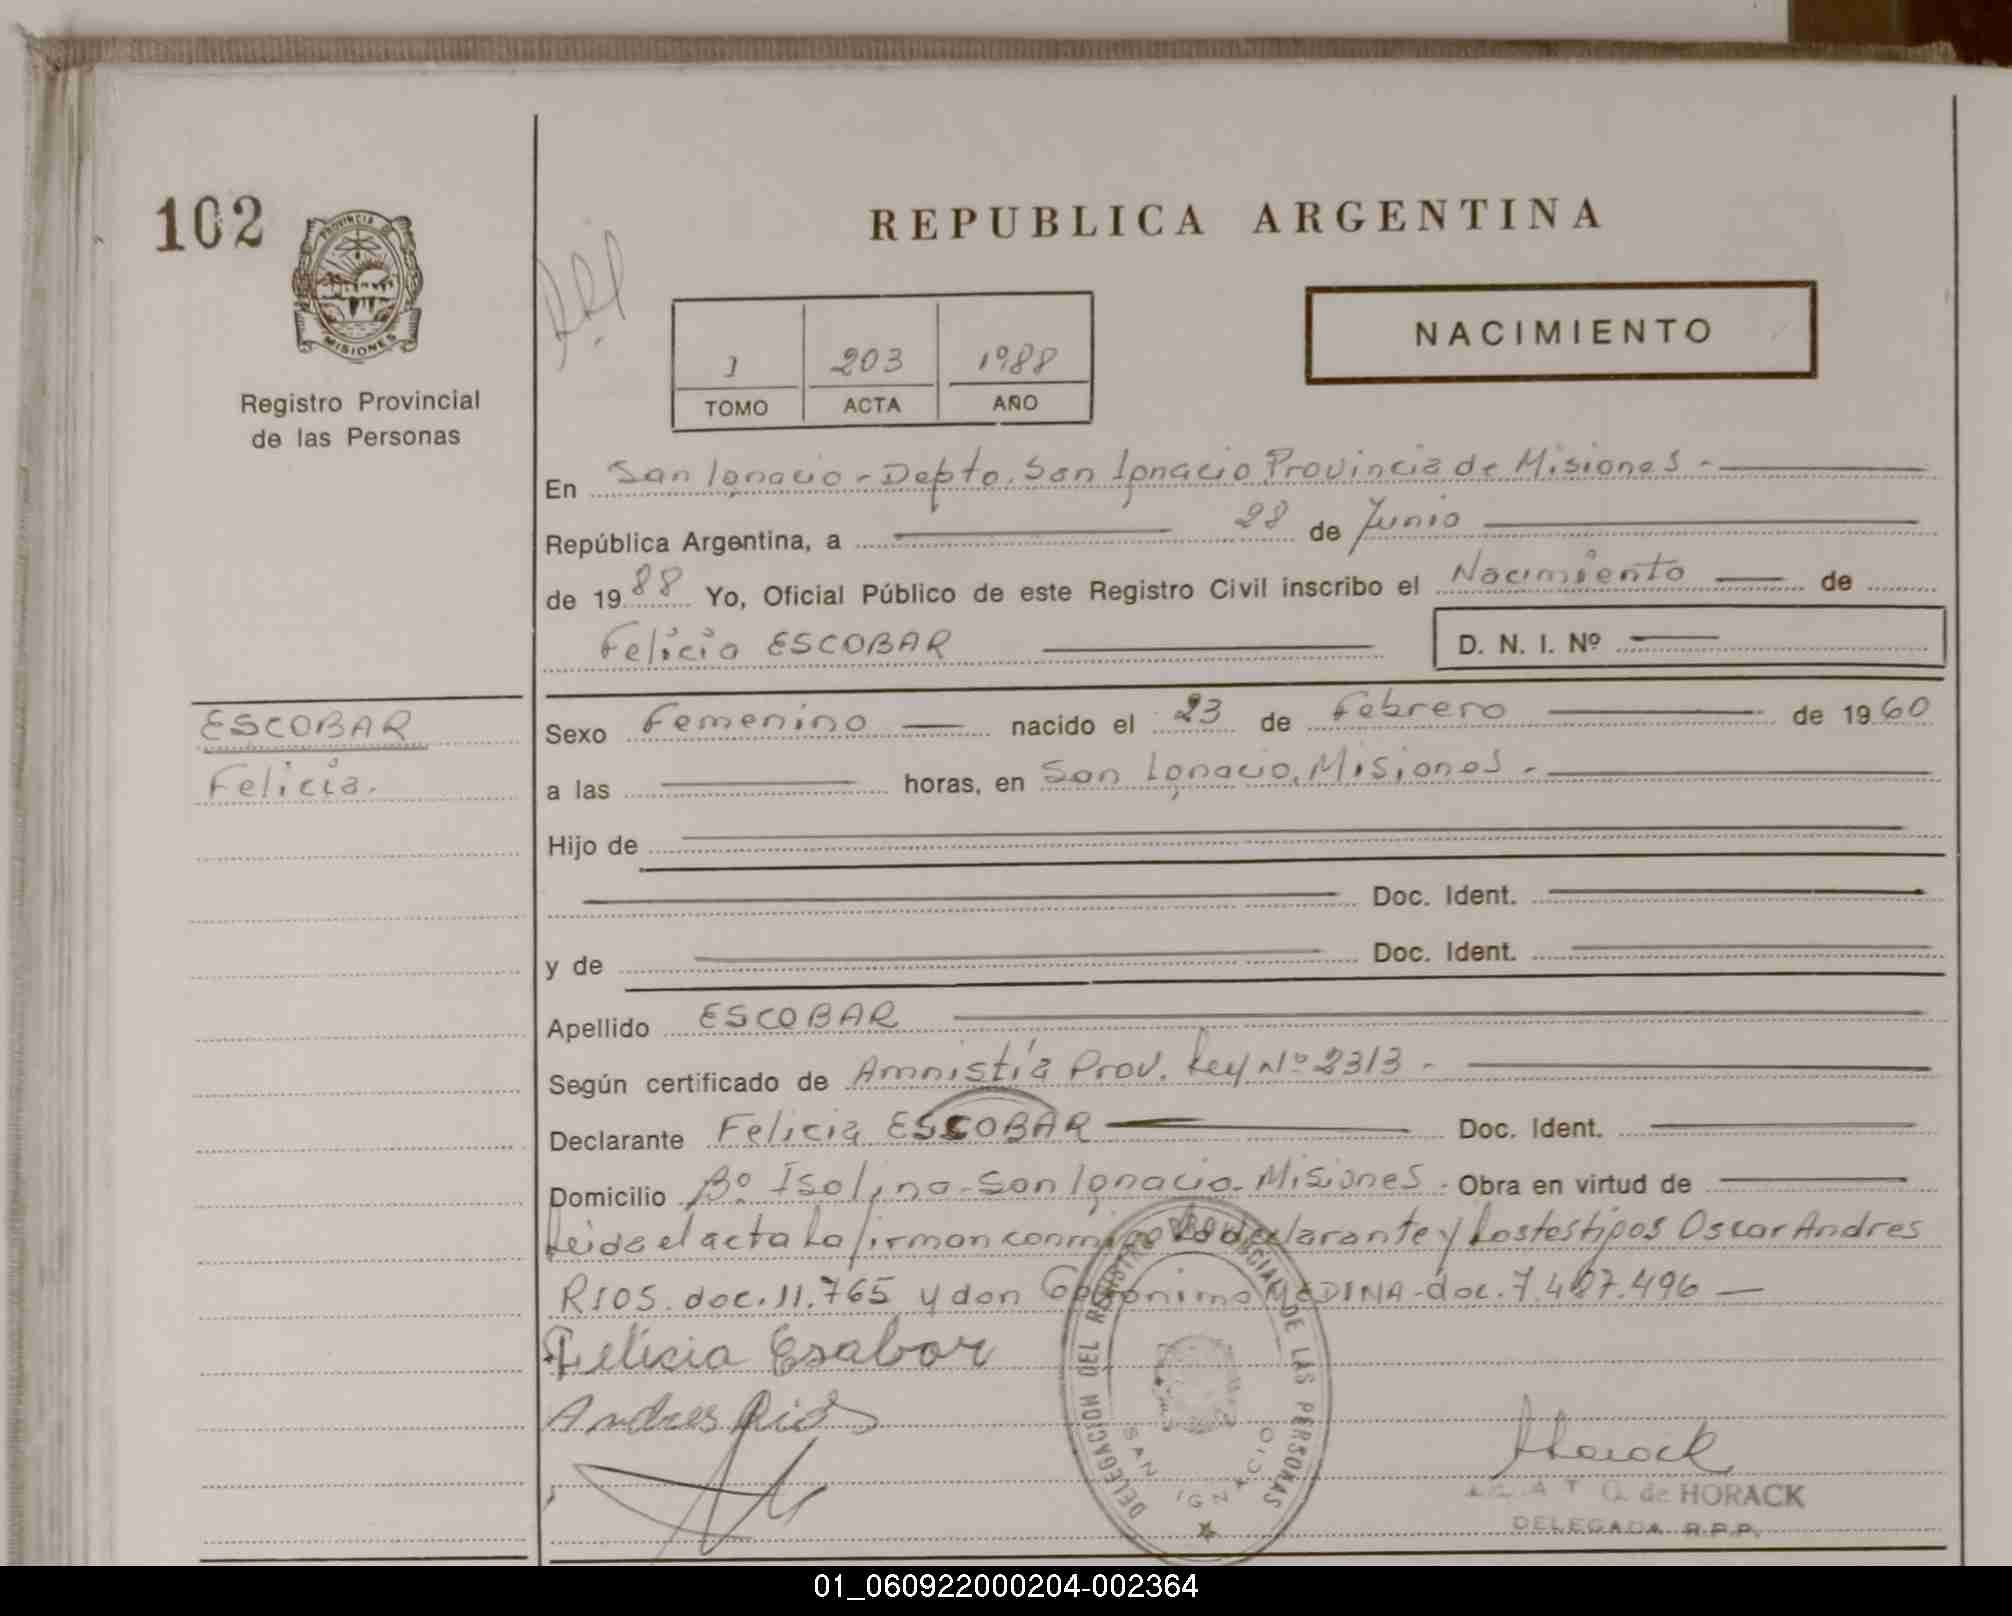 102
PROVINCIA DE
MISIONES
Registro Provincial
de las Personas
REPUBLICA ARGENTINA
NACIMIENTO
1 203 1988
TOMO ACTA AÑO
En San Ignacio - Depto. San Ignacio Provincia de Misiones -
República Argentina, a 28 de Junio
de 1988 Yo, Oficial Público de este Registro Civil inscribo el Nacimiento de
Felicia ESCOBAR D. N. I. Nº
ESCOBAR
Felicia.
Sexo Femenino nacido el 23 de Febrero de 1960
a las horas, en San Ignacio, Misiones -
Hijo de
Doc. Ident.
y de Doc. Ident.
Apellido ESCOBAR
Según certificado de Amnistía Prov. Ley Nº 2313 -
Declarante Felicia ESCOBAR Doc. Ident.
Domicilio Bº Isolina - San Ignacio - Misiones - Obra en virtud de
Leida el acta La firman conmigo La declarante y Los testigos Oscar Andres
RIOS. doc. 11.765 y don Geronimo MEDINA - doc. 7.407.496
Felicia Esabar
Andres Rios
DELEGACION DEL REGISTRO PROVINCIAL DE LAS PERSONAS
SAN IGNACIO
Horack
de HORACK
DELEGADA R.P.P.
01_060922000204-002364